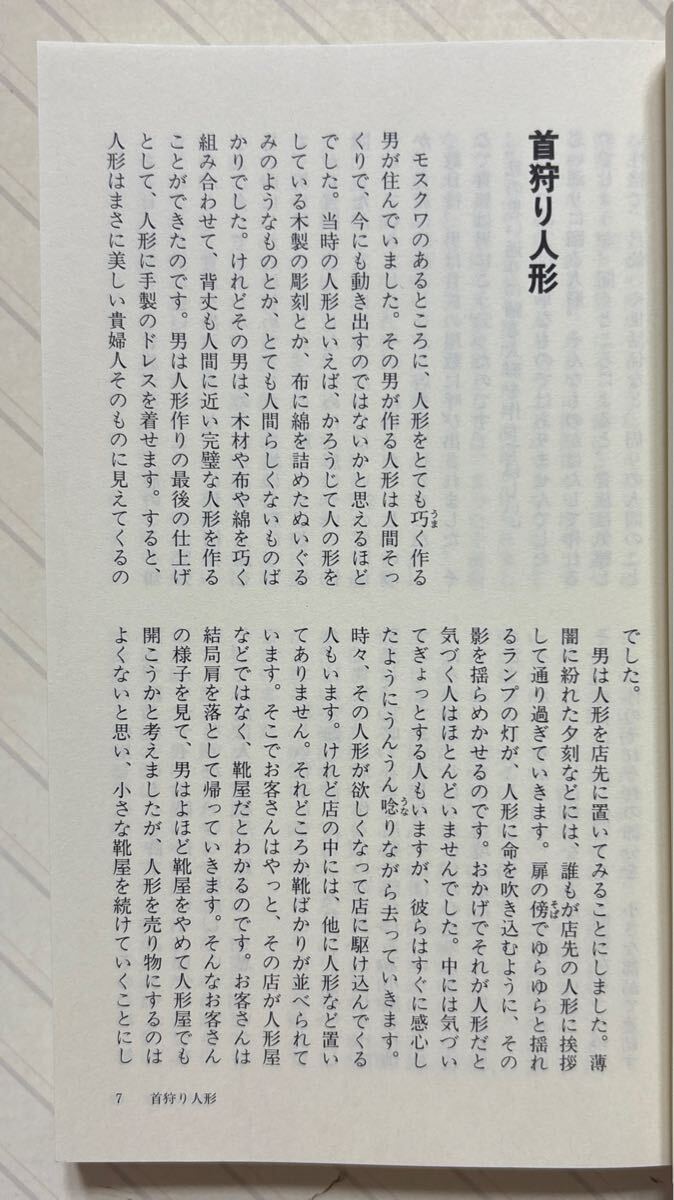 首狩り人形
モスクワのあるところに、人形をとても巧く作る
男が住んでいました。その男が作る人形は人間そっ
くりで、今にも動き出すのではないかと思えるほど
でした。当時の人形といえば、かろうじて人の形を
している木製の彫刻とか、布に綿を詰めたぬいぐる
みのようなものとか、とても人間らしくないものば
かりでした。けれどその男は、木材や布や綿を巧く
組み合わせて、背丈も人間に近い完璧な人形を作る
ことができたのです。男は人形作りの最後の仕上げ
として、人形に手製のドレスを着せます。すると、
人形はまさに美しい貴婦人そのものに見えてくるの
でした。
男は人形を店先に置いてみることにしました。薄
闇に紛れた夕刻などには、誰もが店先の人形に挨拶
して通り過ぎていきます。扉の傍でゆらゆらと揺れ
るランプの灯が、人形に命を吹き込むように、その
影を揺らめかせるのです。おかげでそれが人形だと
気づく人はほとんどいませんでした。中には気づい
てぎょっとする人もいますが、彼らはすぐに感心し
たようにうんうん唸りながら去っていきます。
時々、その人形が欲しくなって店に駆け込んでくる
人もいます。けれど店の中には、他に人形など置い
てありません。それどころか靴ばかりが並べられて
います。そこでお客さんはやっと、その店が人形屋
などではなく、靴屋だとわかるのです。お客さんは
結局肩を落として帰っていきます。そんなお客さん
の様子を見て、男はよほど靴屋をやめて人形屋でも
開こうかと考えましたが、人形を売り物にするのは
よくないと思い、小さな靴屋を続けていくことにし
7 首狩り人形